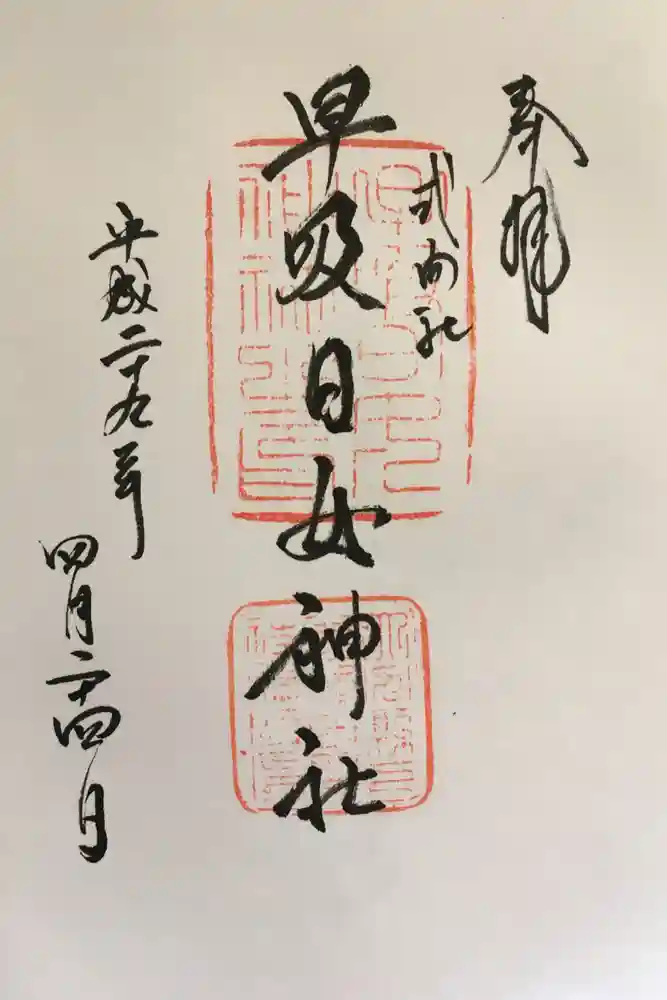 奉拝
式内社
早吸日女神社
平成二十九年
四月二十四日